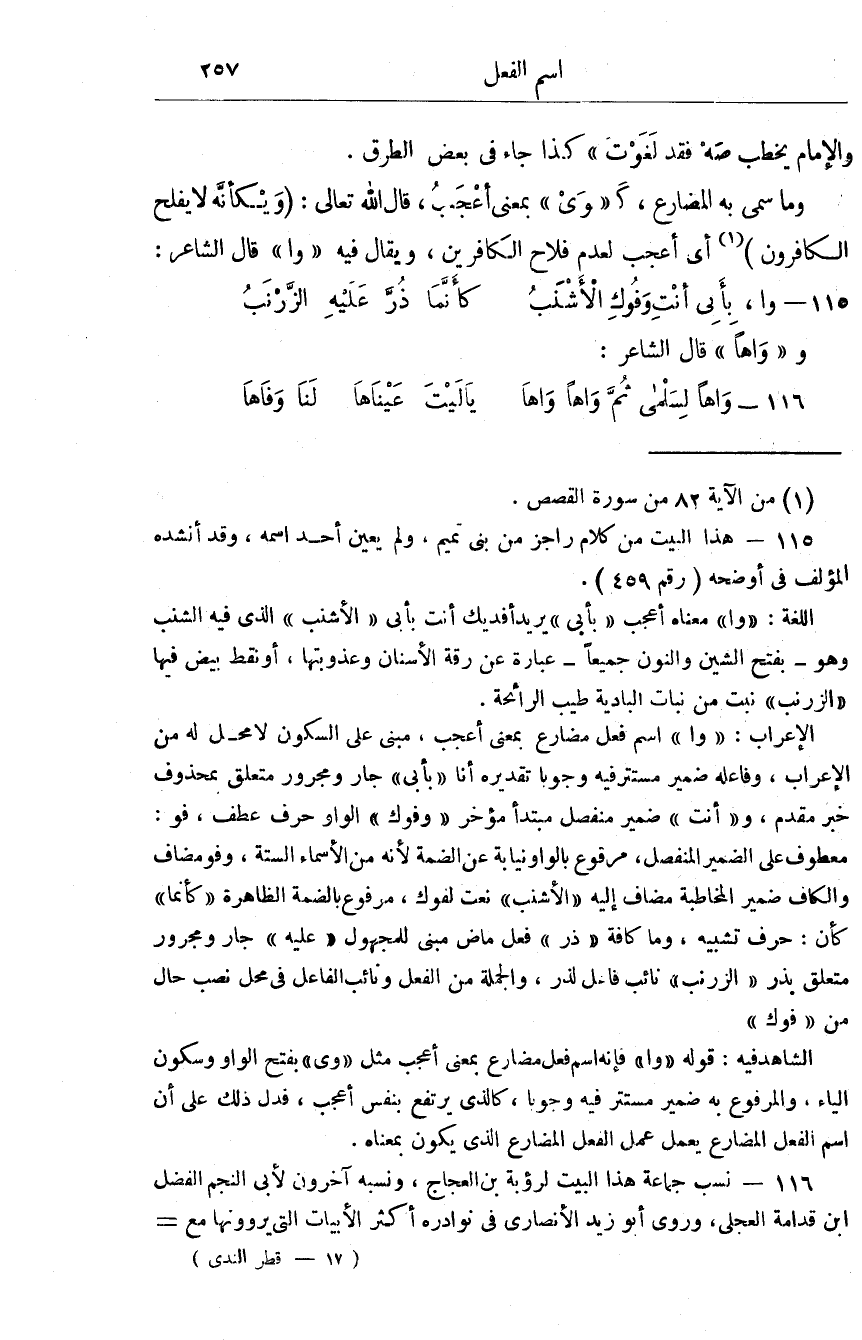 اسم الفعل ٢٥٧
والإمام يخطب صَهْ فقد لَغَوْتَ » كذا جاء فى بعض الطرق .
وما سمى به المضارع ، كَـ « وَىْ » بمعنى أَعْجَبُ ، قال الله تعالى : (وَيْكَأَنَّه لا يفلح
الكافرون )(١) أى أعجب لعدم فلاح الكافرين ، ويقال فيه « وا » قال الشاعر :
١١٥ – وا ، بِأَبِى أَنْتِ وَفُوكِ الْأَشْنَبُ كَأَنَّمَا ذُرَّ عَلَيْهِ الزَّرْنَبُ
و « وَاهاً » قال الشاعر :
١١٦ – وَاهاً لِسَلْمٰى ثُمَّ وَاهاً وَاهَا يَالَيْتَ عَيْنَاهَا لَنَا وَفَاهَا
(١) من الآية ٨٢ من سورة القصص .
١١٥ – هذا البيت من كلام راجز من بنى تميم ، ولم يعين أحد اسمه ، وقد أنشده
المؤلف فى أوضحه ( رقم ٤٥٩ ) .
اللغة : «وا» معناه أعجب « بأبى » يريد أفديك أنت بأبى « الأشنب » الذى فيه الشنب
وهو – بفتح الشين والنون جميعاً – عبارة عن رقة الأسنان وعذوبتها ، أو نقط بيض فيها
«الزرنب» نبت من نبات البادية طيب الرائحة .
الإعراب : « وا » اسم فعل مضارع بمعنى أعجب ، مبنى على السكون لا محل له من
الإعراب ، وفاعله ضمير مستتر فيه وجوبا تقديره أنا «بأبى» جار ومجرور متعلق بمحذوف
خبر مقدم ، و« أنت » ضمير منفصل مبتدأ مؤخر « وفوك » الواو حرف عطف ، فو :
معطوف على الضمير المنفصل، مرفوع بالواو نيابة عن الضمة لأنه من الأسماء الستة ، وفو مضاف
والكاف ضمير المخاطبة مضاف إليه «الأشنب» نعت لفوك ، مرفوع بالضمة الظاهرة «كأنما»
كأن : حرف تشبيه ، وما كافة « ذر » فعل ماض مبنى للمجهول « عليه » جار ومجرور
متعلق بذر « الزرنب» نائب فاعل لذر ، والجملة من الفعل ونائب الفاعل فى محل نصب حال
من « فوك »
الشاهد فيه : قوله «وا» فإنه اسم فعل مضارع بمعنى أعجب مثل «وى» بفتح الواو وسكون
الياء ، والمرفوع به ضمير مستتر فيه وجوبا ، كالذى يرتفع بنفس أعجب ، فدل ذلك على أن
اسم الفعل المضارع يعمل عمل الفعل المضارع الذى يكون بمعناه .
١١٦ – نسب جماعة هذا البيت لرؤبة بن العجاج ، ونسبه آخرون لأبى النجم الفضل
ابن قدامة العجلى، وروى أبو زيد الأنصارى فى نوادره أكثر الأبيات التى يروونها مع =
( ١٧ – قطر الندى )